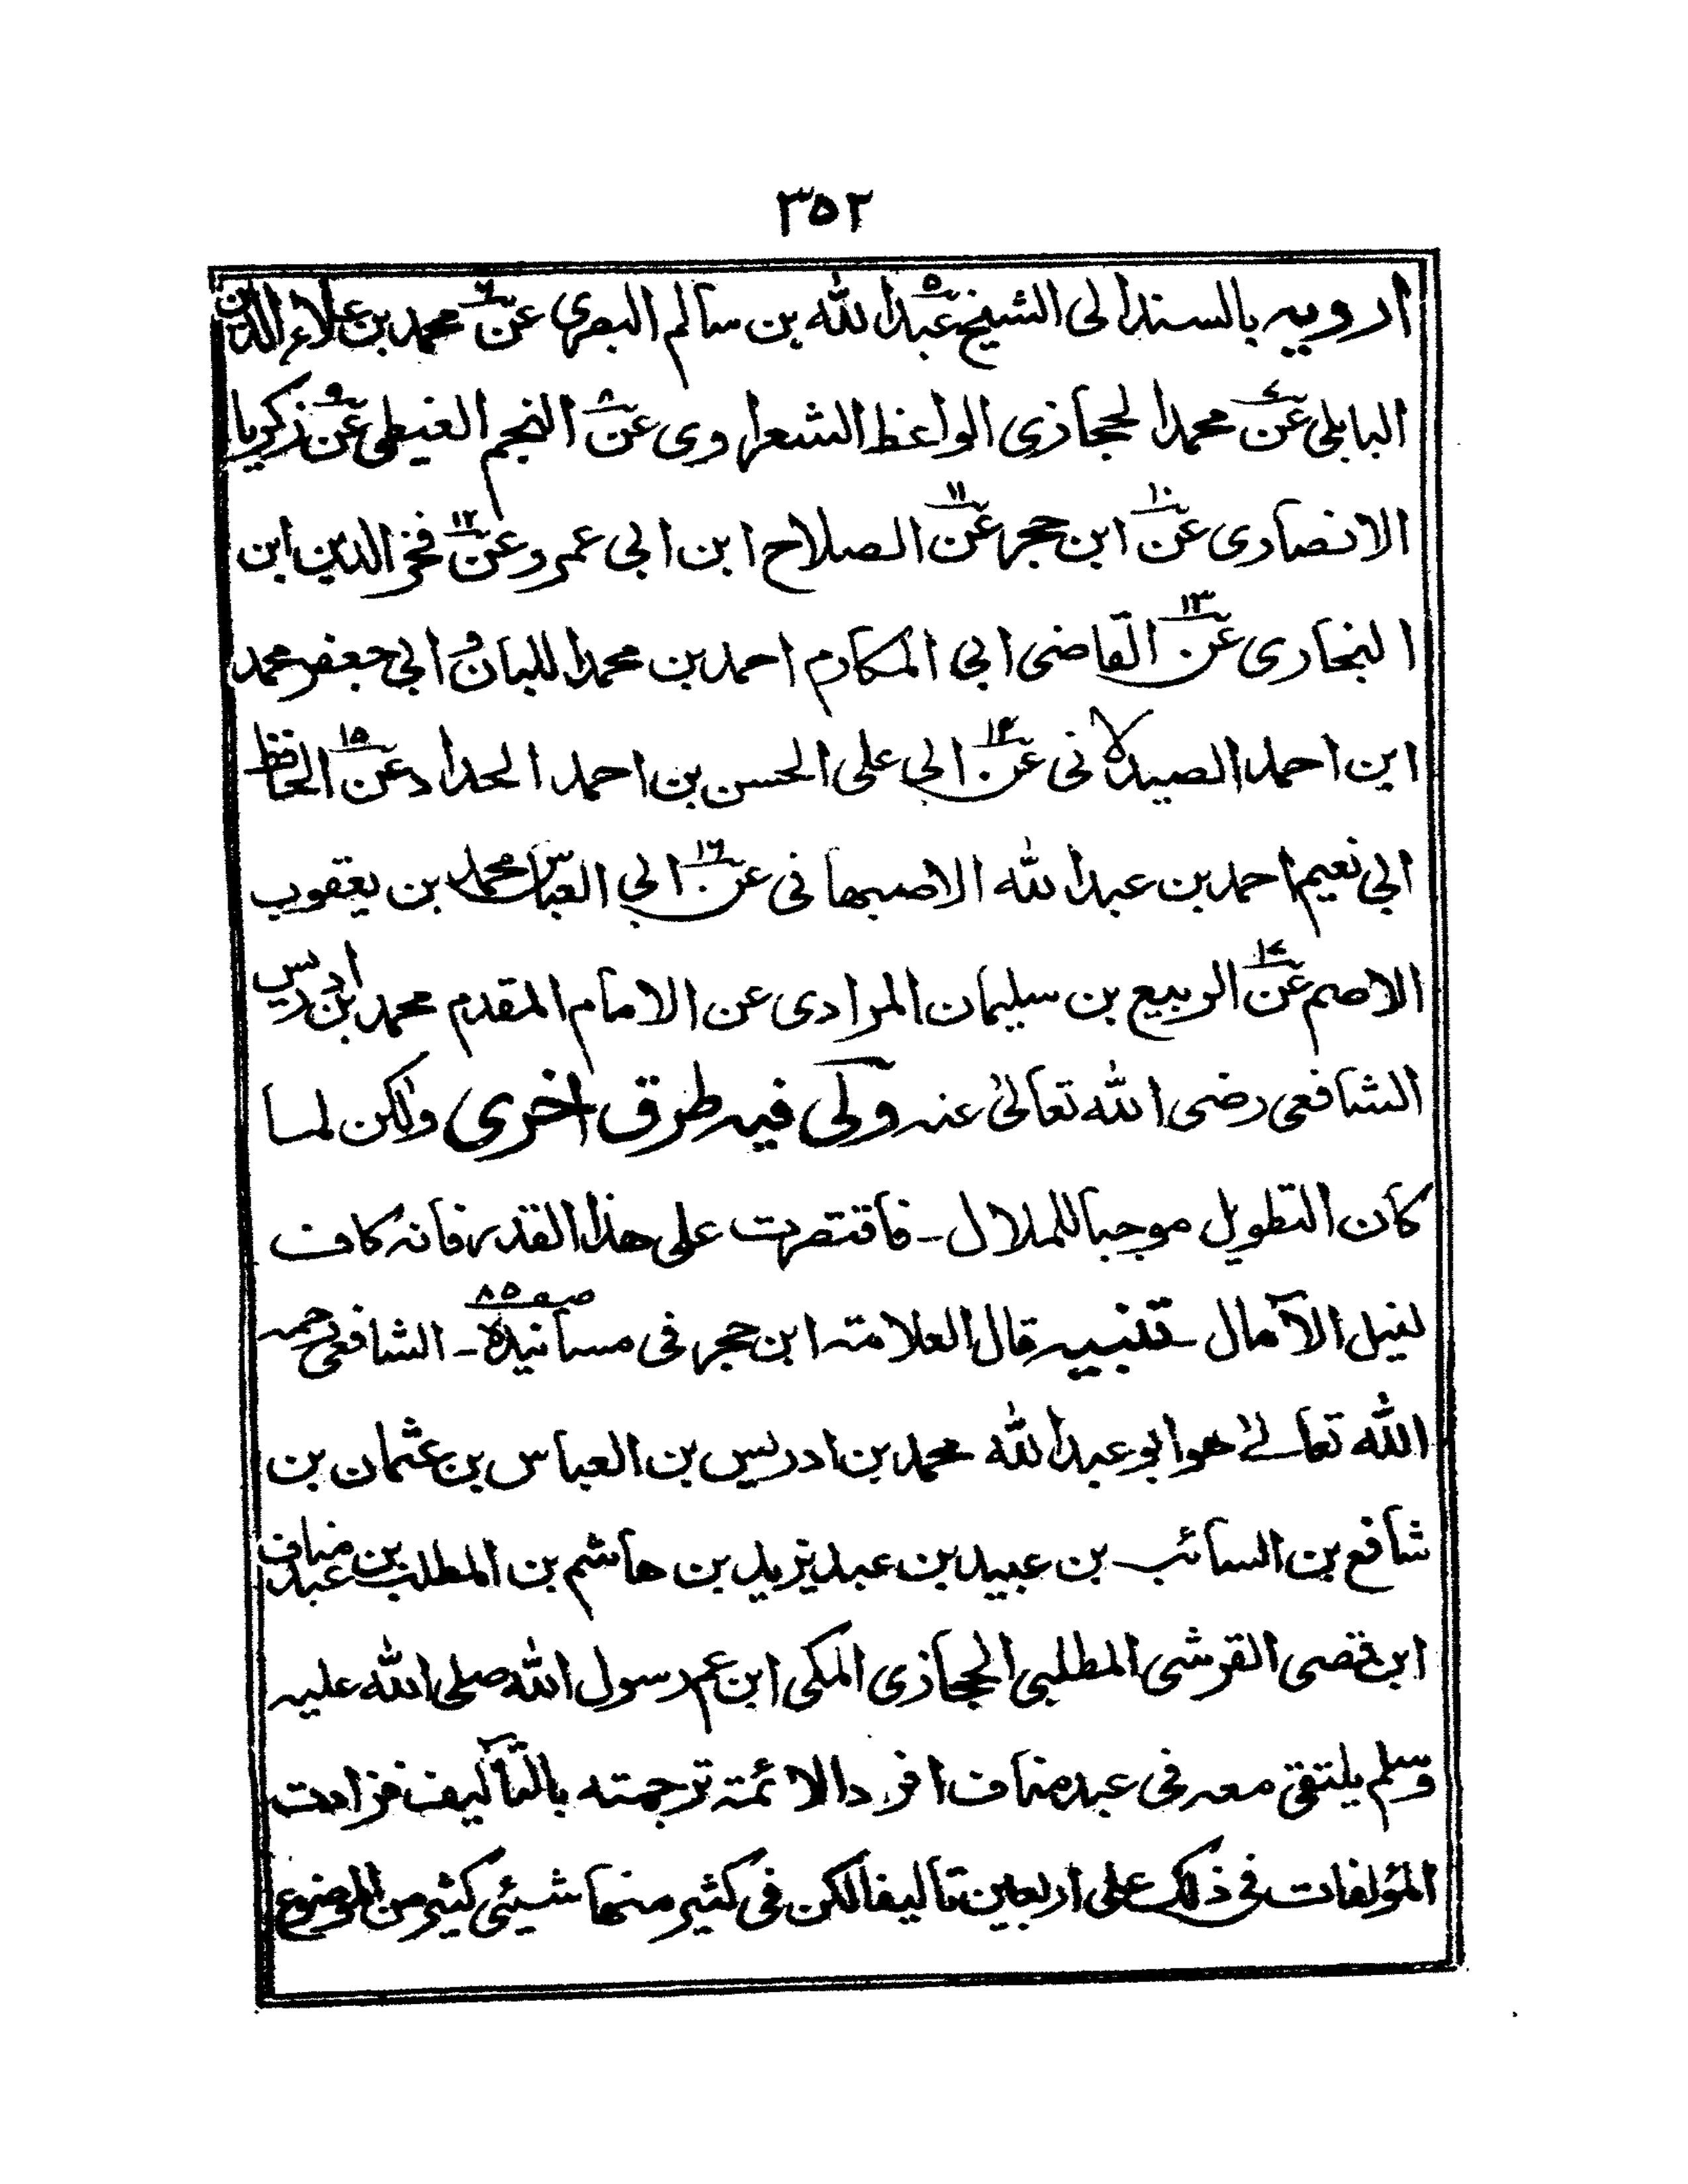 ٣٥٢
ارويه بالسند الى الشيخ عبد الله٥ بن سالم البصرى عن٦ محمد بن علاء الدين
البابلى عن٧ محمد الحجازى الواعظ الشعراوى عن٨ النجم الغيطى عن٩ زكريا
الانصارى عن١٠ ابن حجر عن١١ الصلاح ابن ابى عمرو عن١٢ فخر الدين ابن
البخارى عن١٣ القاضى ابى المكارم احمد بن محمد اللبان و ابى جعفر محمد
ابن احمد الصيدلانى عن١٤ ابى على الحسن بن احمد الحداد عن١٥ الحافظ
ابى نعيم احمد بن عبد الله الاصبهانى عن١٦ ابى العباس محمد بن يعقوب
الاصم عن١٧ الربيع بن سليمان المرادى عن الامام المقدم محمد بن ادريس
الشافعى رضى الله تعالىٰ عنه ولى فيه طرق اخرى ولكن لما
كان التطويل موجبا للملال - فاقتصرت على هذا القدر فانه كاف
لنيل الآمال - تنبيه قال العلامته ابن حجر فى مسانيده صـ ٨٥ - الشافعى رحمه
الله تعالىٰ هو ابو عبد الله محمد بن ادريس بن العباس بن عثمان بن
شافع بن السائب بن عبيد بن عبد يزيد بن هاشم بن المطلب بن عبد مناف
ابن قصى القرشى المطلبى الحجازى المكى ابن عم رسول الله صلى الله عليه
وسلم يلتقى معه فى عبد مناف افرد الائمة ترجمته بالتآليف فزادت
المؤلفات فى ذلك على اربعين تاليفا لكن فى كثير منها شيئى كثير من الموضوع